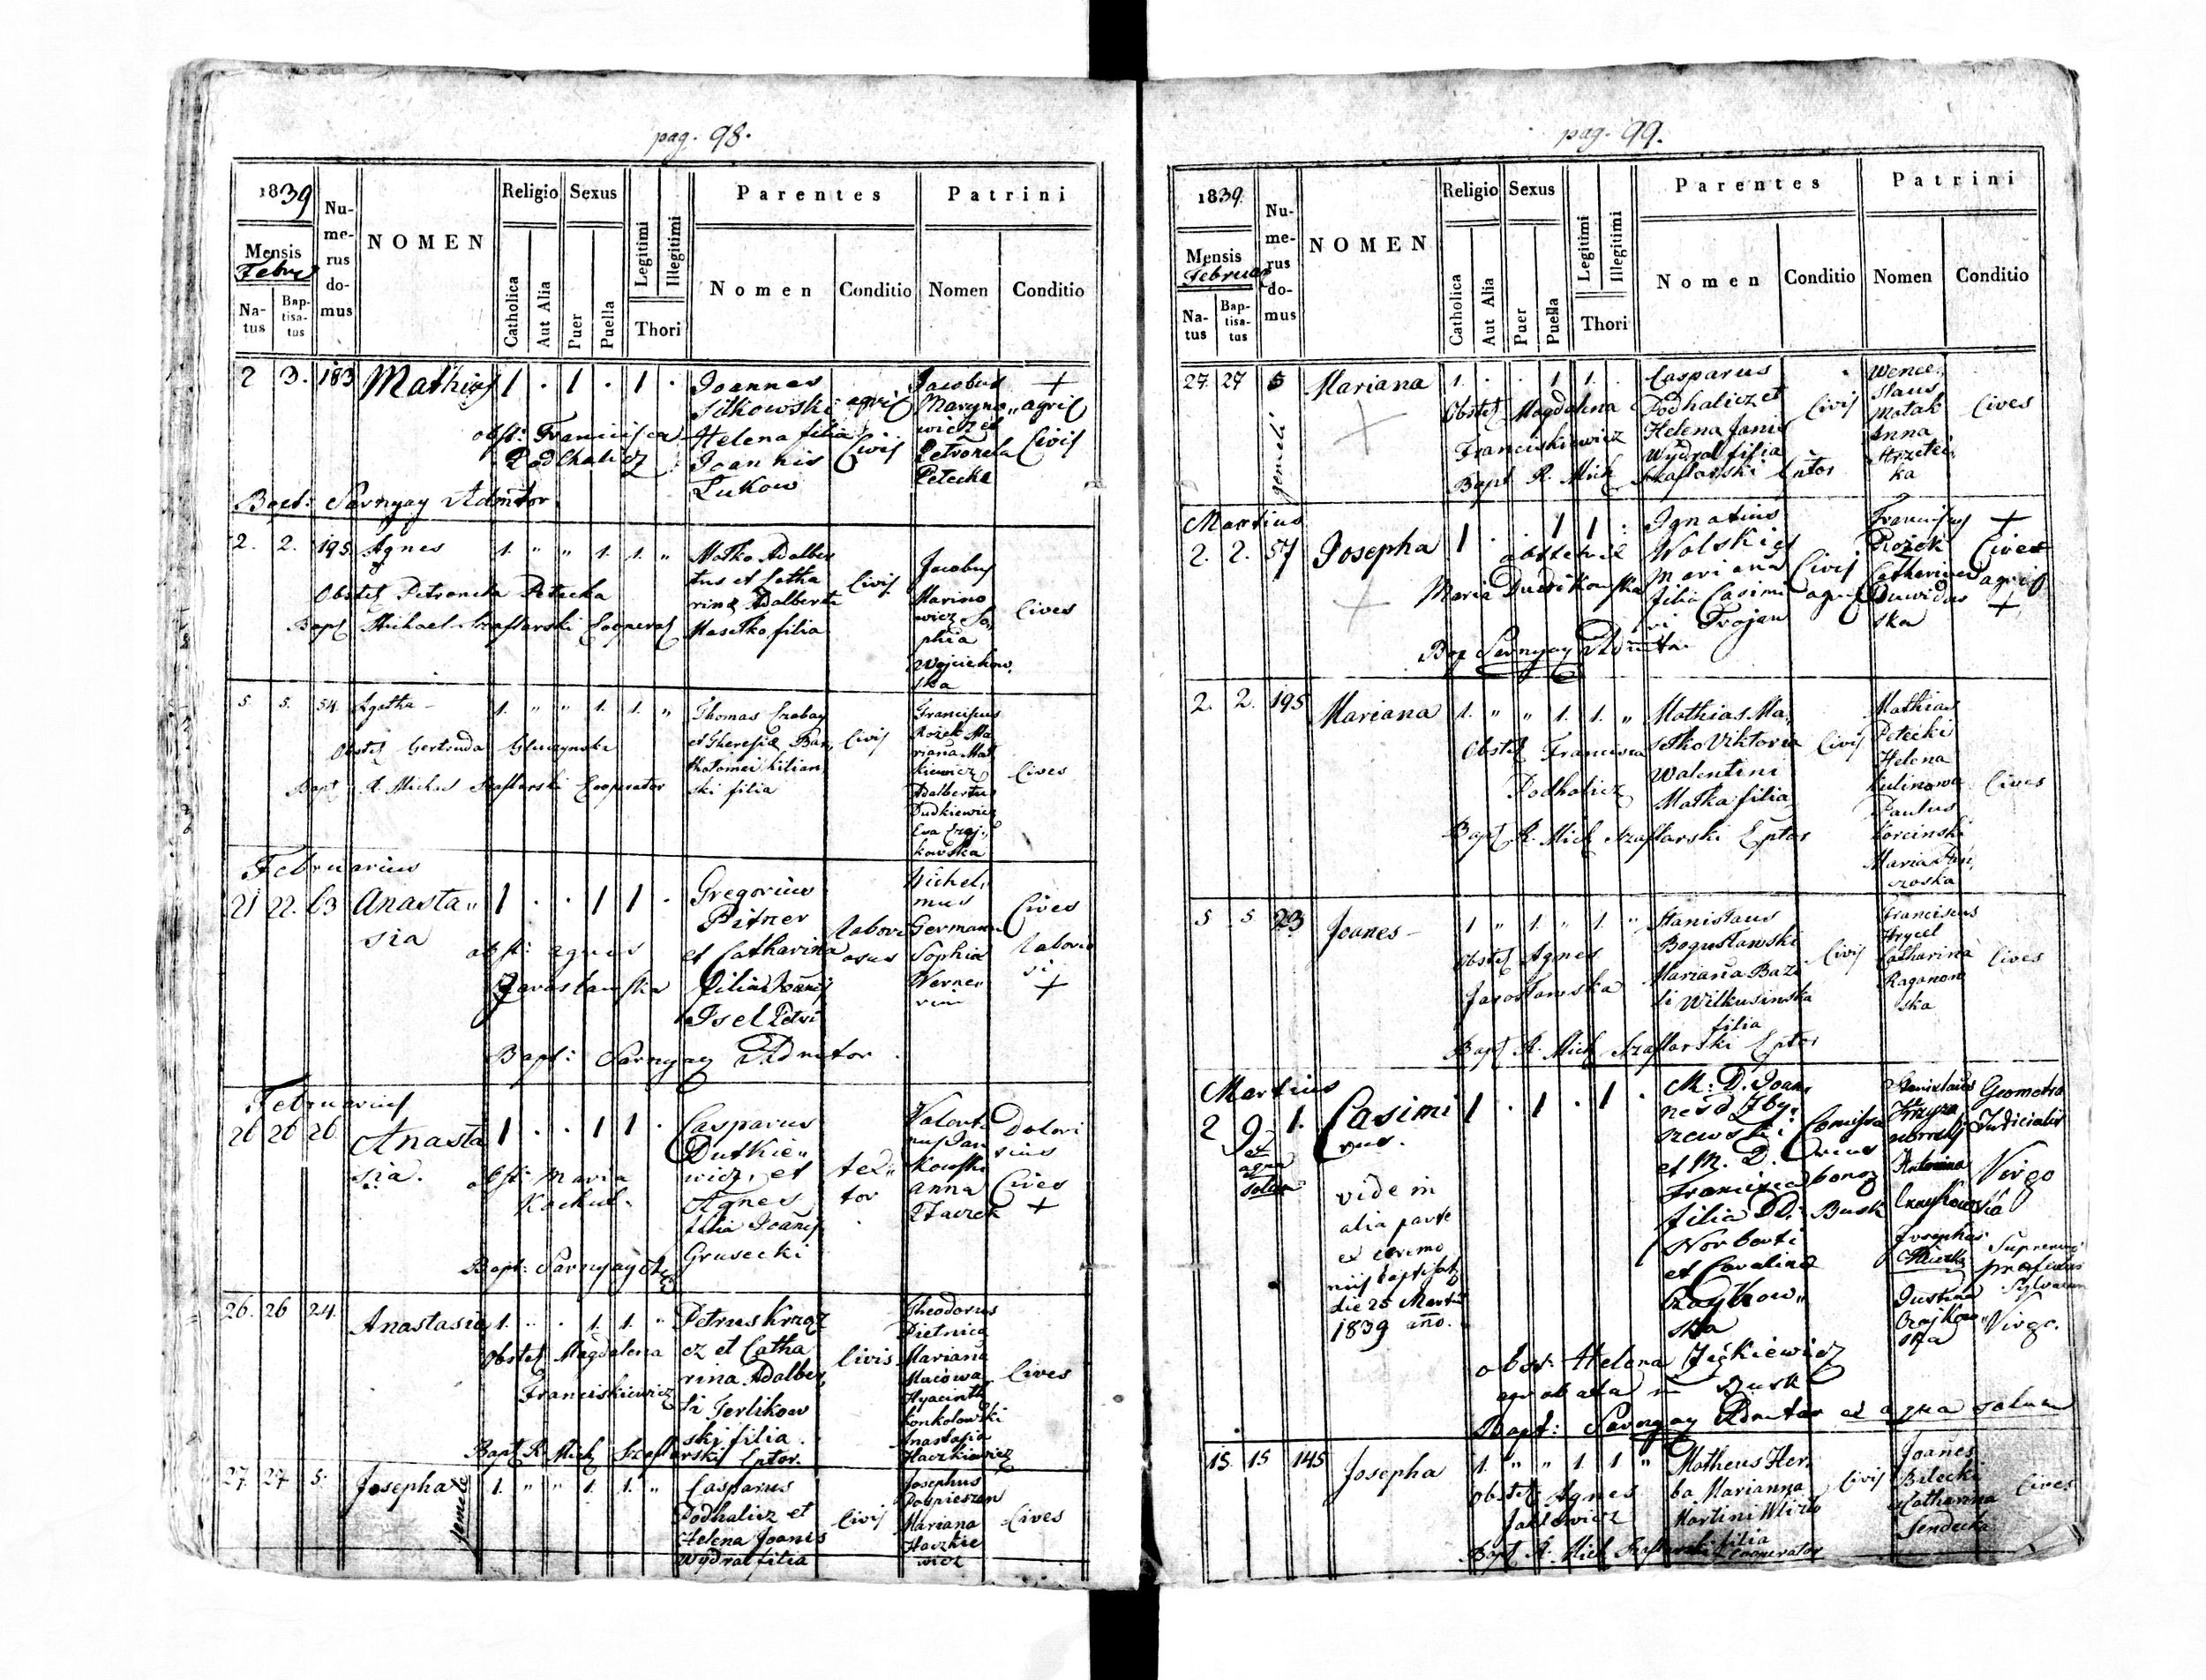 pag. 98.
1839
Mensis
Febru
Na-
tus
Bap-
tisa-
tus
Nu-
me-
rus
do-
mus
NOMEN
Religio
Catholica
Aut Alia
Sexus
Puer
Puella
Legitimi
Illegitimi
Thori
Parentes
Nomen
Conditio
Patrini
Nomen
Conditio
2 3. 183 Mathias 1 . 1 . 1 .
Joannes
Sitkowski agric
Helena filia
Joannis Civis
Lukow
Jacobus +
Maryno" agric
wicz et
Petronela Civis
Petecka
obst: Francisca
Podhalicz
Bapt: Sarnyay Admtor
2. 2. 195 Agnes 1. " " 1. 1. "
Matko Adalber
tus et Catha
rina Adalberti
Masetko filia
Civis
Jacobus
Marino
wicz So,
phia
Wojciechow
ska
Cives
Obstet Petronela Petecka
Bapt Michael Szaflarski Cooperat
5. 5. 54. Agatha 1. " " 1. 1. "
Thomas Czabay
et Theresia Bar,
tholomei Kilian
ski filia
Civis
Franciscus
Rożek Ma
riana Mat
kiewicz
Adalbertus
Dudkiewicz
Eva Czaj,
kowska
Cives
Obstet Gertruda Gluczynska
Bapt R. Michael Szaflarski Cooperator
Februarius
21 22. 63 Anasta"
sia
1 . . 1 1 .
Gregorius
Pitner
et Catharina
filia Joanis
Isel Petri
Labori
osus
Wilhel,
mus
German
Sophia
Werne"
rin
Cives
Laborio
si
+
obst: Agnes
Jaroslawska
Bapt: Sarnyay Admtor.
Februarius
26 26 26. Anasta
sia.
1 . . 1 1 .
Casparus
Dutkie"
wicz, et
Agnes
filia Joanis
Grusecki
tex"
tor
Valenti
nus Jan
kowski
Anna
Ptaczek
Dolori
sius
Cives
+
obst: Maria
Kochul.
Bapt: Sarnyay
26. 26 24. Anastasia 1. " . 1. 1. "
Petrus Krząz
cz et Catha
rina Adalber,
ti Terlikow
ski filia
Civis
Theodorus
Pietnica
Mariana
Macowa
Hyacinth
Konkolowski
Anastasia
Haczkiewicz
Cives
Obstet Magdalena
Franciskiewicz
Bapt R. Mich Szaflarski Cptor.
27. 27 5. Josepha gemeli 1. " " 1. 1. "
Casparus
Podhalicz et
Helena Joanis
Wydral filia
Civis
Josephus
Pospieszen
Mariana
Haczkie
wicz
Cives
pag. 99.
1839.
Mensis
Februar
Na-
tus
Bap-
tisa-
tus
Nu-
me-
rus
do-
mus
NOMEN
Religio
Catholica
Aut Alia
Sexus
Puer
Puella
Legitimi
Illegitimi
Thori
Parentes
Nomen
Conditio
Patrini
Nomen
Conditio
27. 27 5 gemeli Mariana 1. . . 1 1. .
Casparus
Podhalicz et
Helena Janis
Wydral filia
Civis
Wence,
slaus
Matak
Anna
Strzelec
ka
Cives
Obstet Magdalena
Franciskiewicz
Bapt R. Mich Szaflarski Cptor
Martius
2. 2. 57 Josepha 1 . . 1 1 .
Ignatius
Wolski et
Mariana
filia Casimi
ri Trojan
Civis
agric
Franciscus +
Rożek Cives
Catherina agric
Dawidow +
ska
obstetric
Maria Dudzikowska
Bap Sarnyay Admtor
2. 2. 195 Mariana 1. " " 1. 1. "
Mathias Ma,
setko Viktoria
Walentini
Matka filia
Civis
Mathias
Petecki
Helena
Kulinowa
Paulus
Korcinski
Maria
Cives
Obstet Francisca
Podhalicz
Bapt R. Mich Szaflarski Cptor
5 5 23 Joanes 1 " 1. " 1. "
Stanislaus
Bogusławski
Mariana Bazi
li Wilkusinska
filia
Civis
Franciscus
Hrycel
Catharina
Raganow
ska
Cives
Obstet Agnes
Jaroslawska
Bapt R. Mich Szaflarski Cptor
Martius
2 9 1. Casimi
rus.
et
aqua
solum
1 . 1 . 1 .
M: D. Joan,
nes d Zby,
szewski
et M. D.
Francisca
filia DD:
Norberti
et Carolina
Czaykow"
ska
Comissa
rius
bonor
Busk
Stanislaus
Krzyza
nowski
Antonina
Czaykowska
Josephus
Justina
Czajkow"
ska
Geometra
Judicialis
Virgo
Supremus
praefectus
Sylvarum
Virgo.
vide in
alia parte
ex ceremo
niis baptisat
die 25 Martii
1839 ano.
obst: Helena Zięckiewicz
aprobata in Busk
Bapt: Sarnyay Admtor ex aqua solum
15. 15 145 Josepha 1. " " 1. 1 "
Matheus Her,
ba Marianna
Martini Wlizlo
filia
Civis
Joanes
Bilecki
Catharina
Sendecka
Cives
Obstet Agnes
Jaklewicz
Bapt R. Mich Szaflarski Cooperator